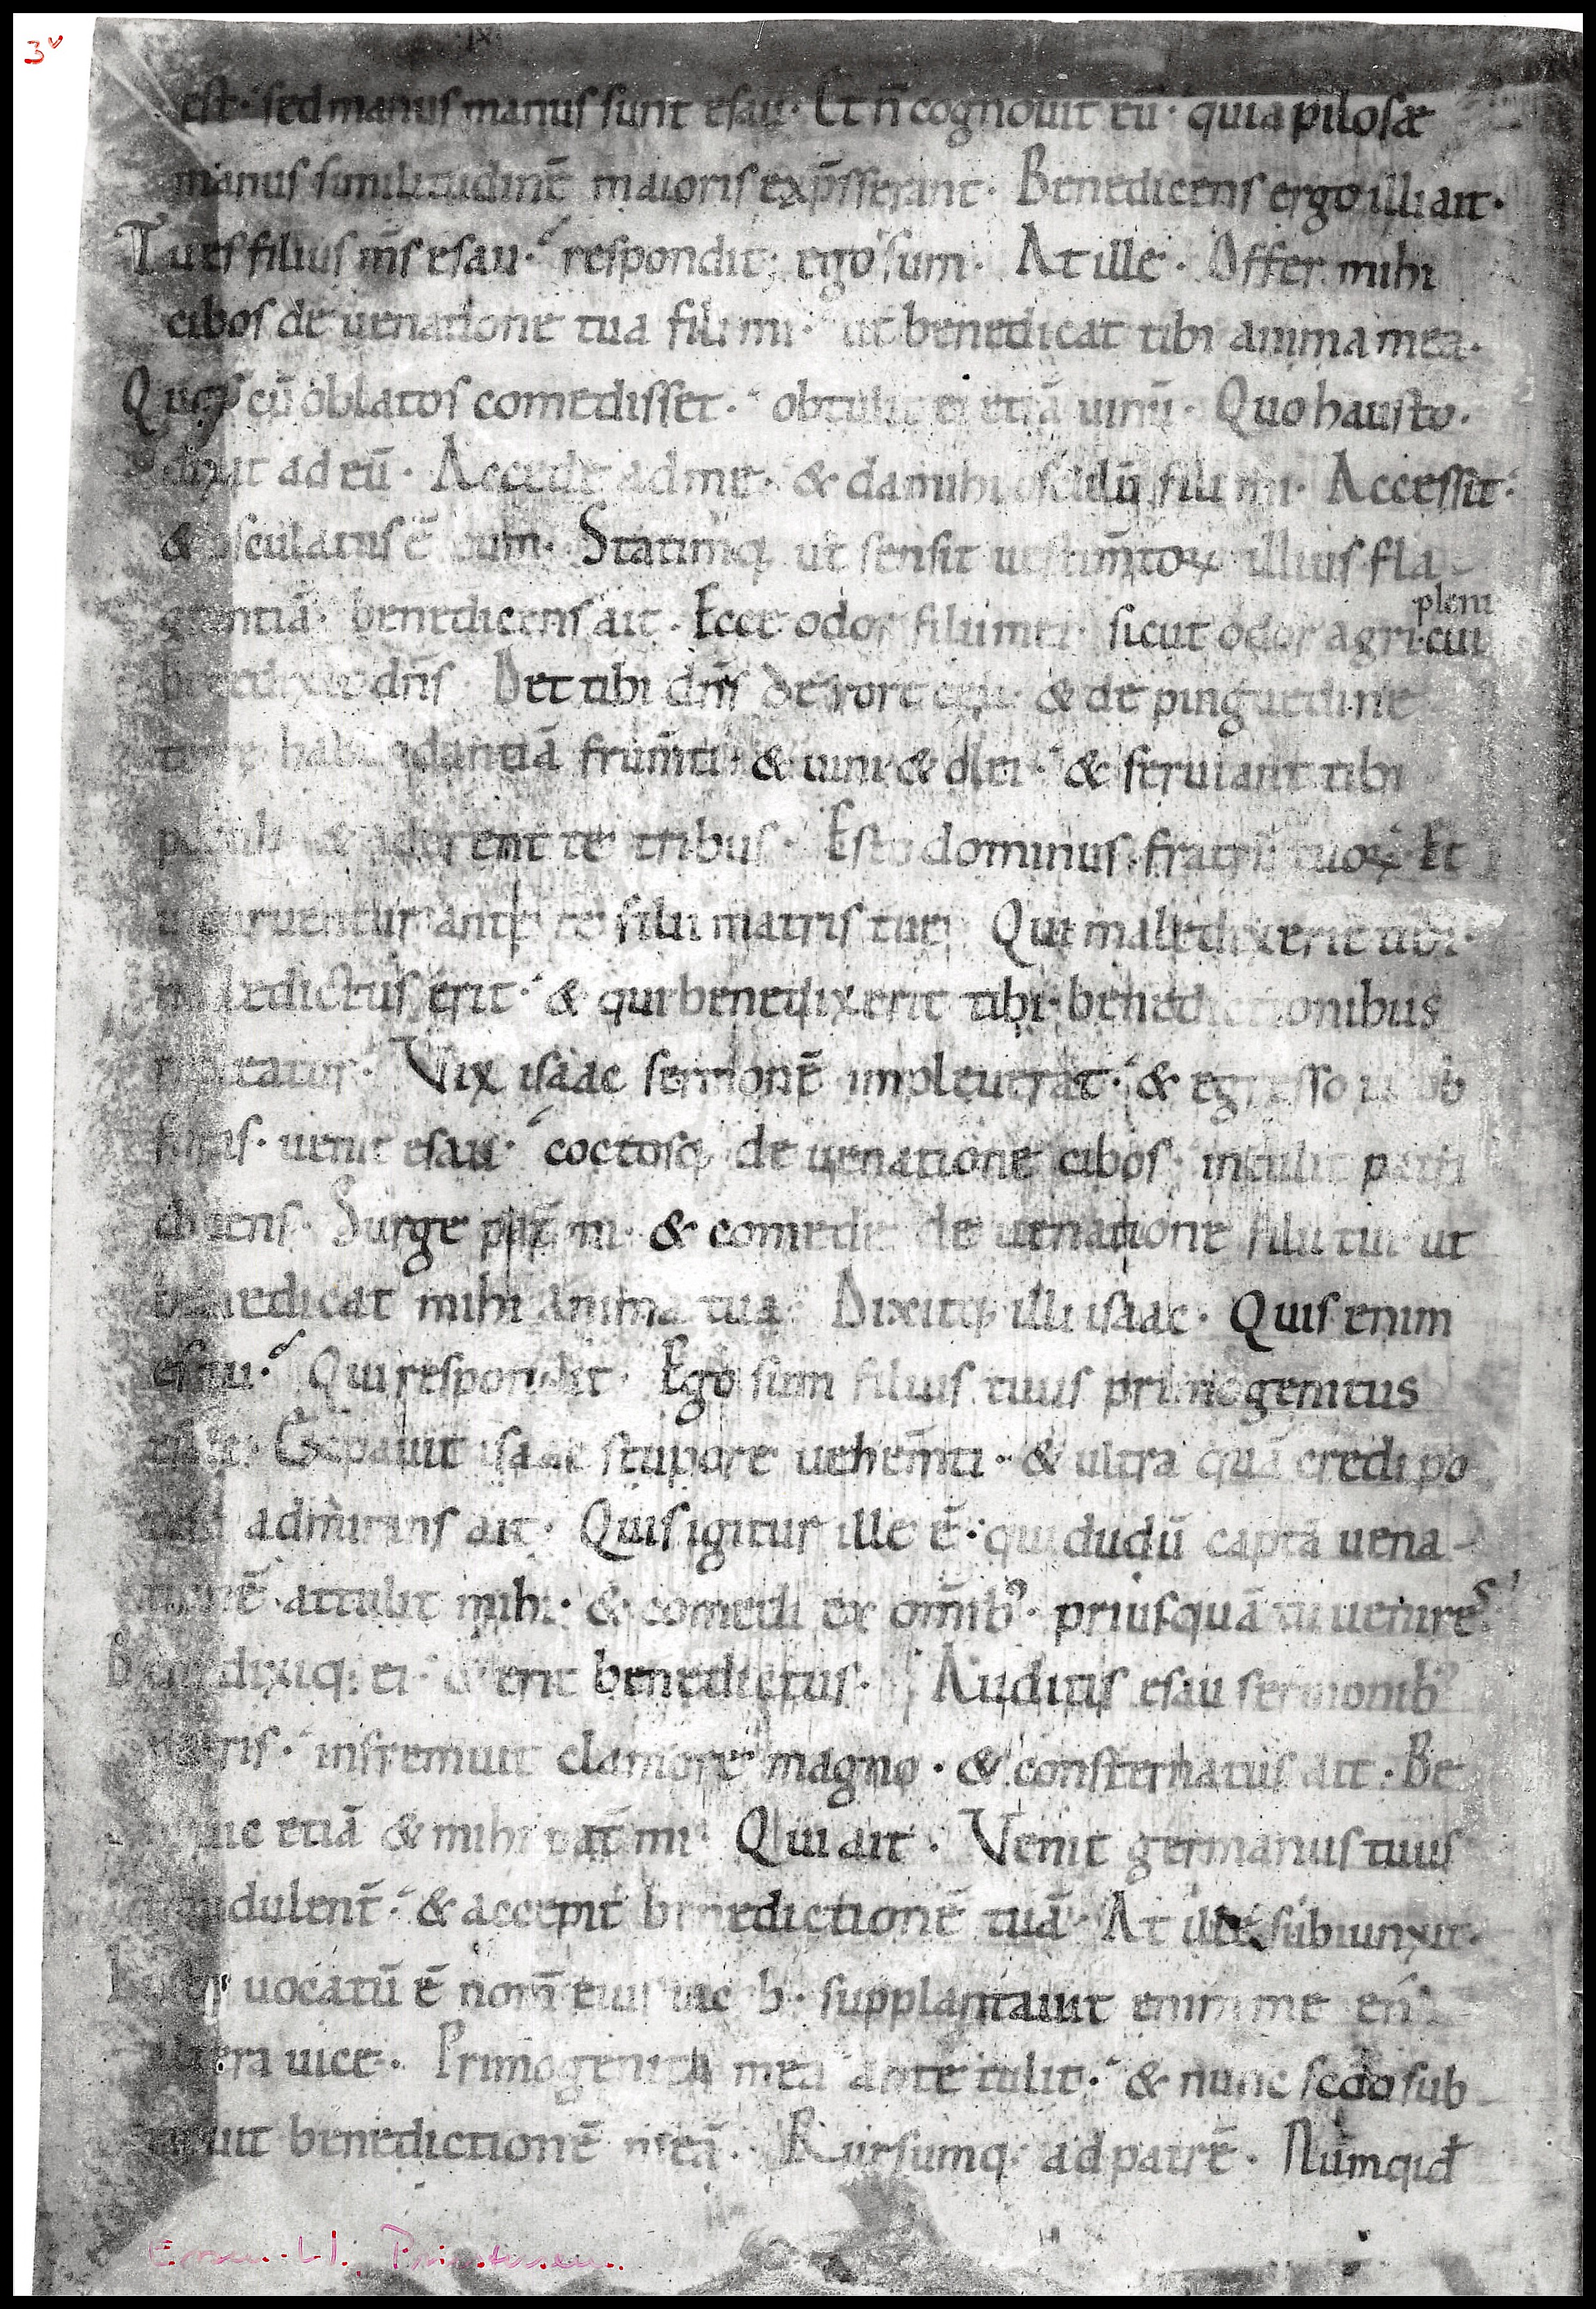 3v
est· sed manus manus sunt esau· Et n̄ cognouit eū· quia pilosæ
manus similitudinē maioris exp̄sserant· Benedicens ergo illi ait·
Tu es filius m̄s esau· respondit; ego sum· At ille· Offer mihi
cibos de uenatione tua fili mi· ut benedicat tibi anima mea·
Quos cū oblatos comedisset· obtulit ei etiā uinū· Quo hausto·
dixit ad eū· Accede ad me· & da mihi osculū fili mi· Accessit·
& osculatus ē eum· Statimq; ut sensit uestim̄toꝝ illius fla-
grantiā· benedicens ait· Ecce odor filii mei· sicut odor agri
pleni
cui
benedixit dn̄s· Det tibi dn̄s de rore celi· & de pinguedine
terre habundantiā frum̄ti· & uini & olei· & seruiant tibi
populi & adorent te tribus· Esto dominus fratrū tuoꝝ Et
incuruentur ante te filii matris tue Qui maledixerit tibi·
maledictus erit· & qui benedixerit tibi· benedictionibus
repleatur· Vix isaac sermonē impleuerat· & egresso iacob
foras· uenit esau· coctosq; de uenatione cibos· intulit patri
dicens· Surge pat̄ mi· & comede de uenatione filii tui ut
benedicat mihi anima tua· Dixitq; illi isaac· Quis enim
es tu· Qui respondit· Ego sum filius tuus primogenitus
esau· Expauit isaac stupore uehem̄ti· & ultra quā credi po-
test admirans ait· Quis igitur ille ē· qui dudū captā uena-
tionē attulit mihi· & comedi ex om̄ibꝰ· priusquā tu uenires
Benedixiq; ei· & erit benedictus· Auditis esau sermonibꝰ
patris· infremuit clamore magno· & consternatus ait· Be
nedic etiā & mihi pat̄ mi· Qui ait· Venit germanus tuus
fraudulent̄· & accepit benedictionē tuā· At ille subiunxit·
Iuste uocatū ē nom̄ eius iacob· supplantauit enim me en
altera uice· Primogenita mea ante tulit· & nunc scd̄o sub-
ripuit benedictionē meā· Rursumq; ad patrē· Numqid